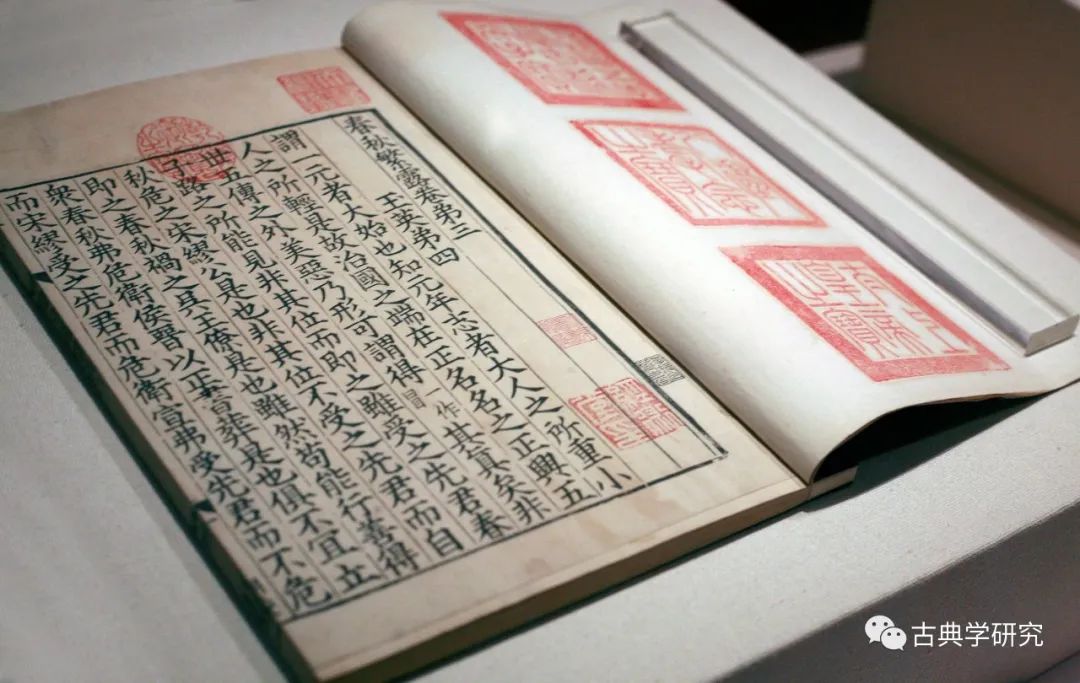 春秋繁露卷第三
王英第四
謂一元者大始也知元年志者大人之所重小
人之所輕是故治國之端在正名名之正興五
世五傳之外美惡乃形可謂得一作冒其真矣非
子路之所能見非其位而即之雖受之先君春
秋危之宋繆公是也非其位不受之先君而自
即之春秋禍之吳王僚是也雖然苟能行善得
衆春秋弗危衛侯晉以正書葬是也俱不宜立
而宋繆受之先君而危衛宣弗受先君而不危
古典学研究